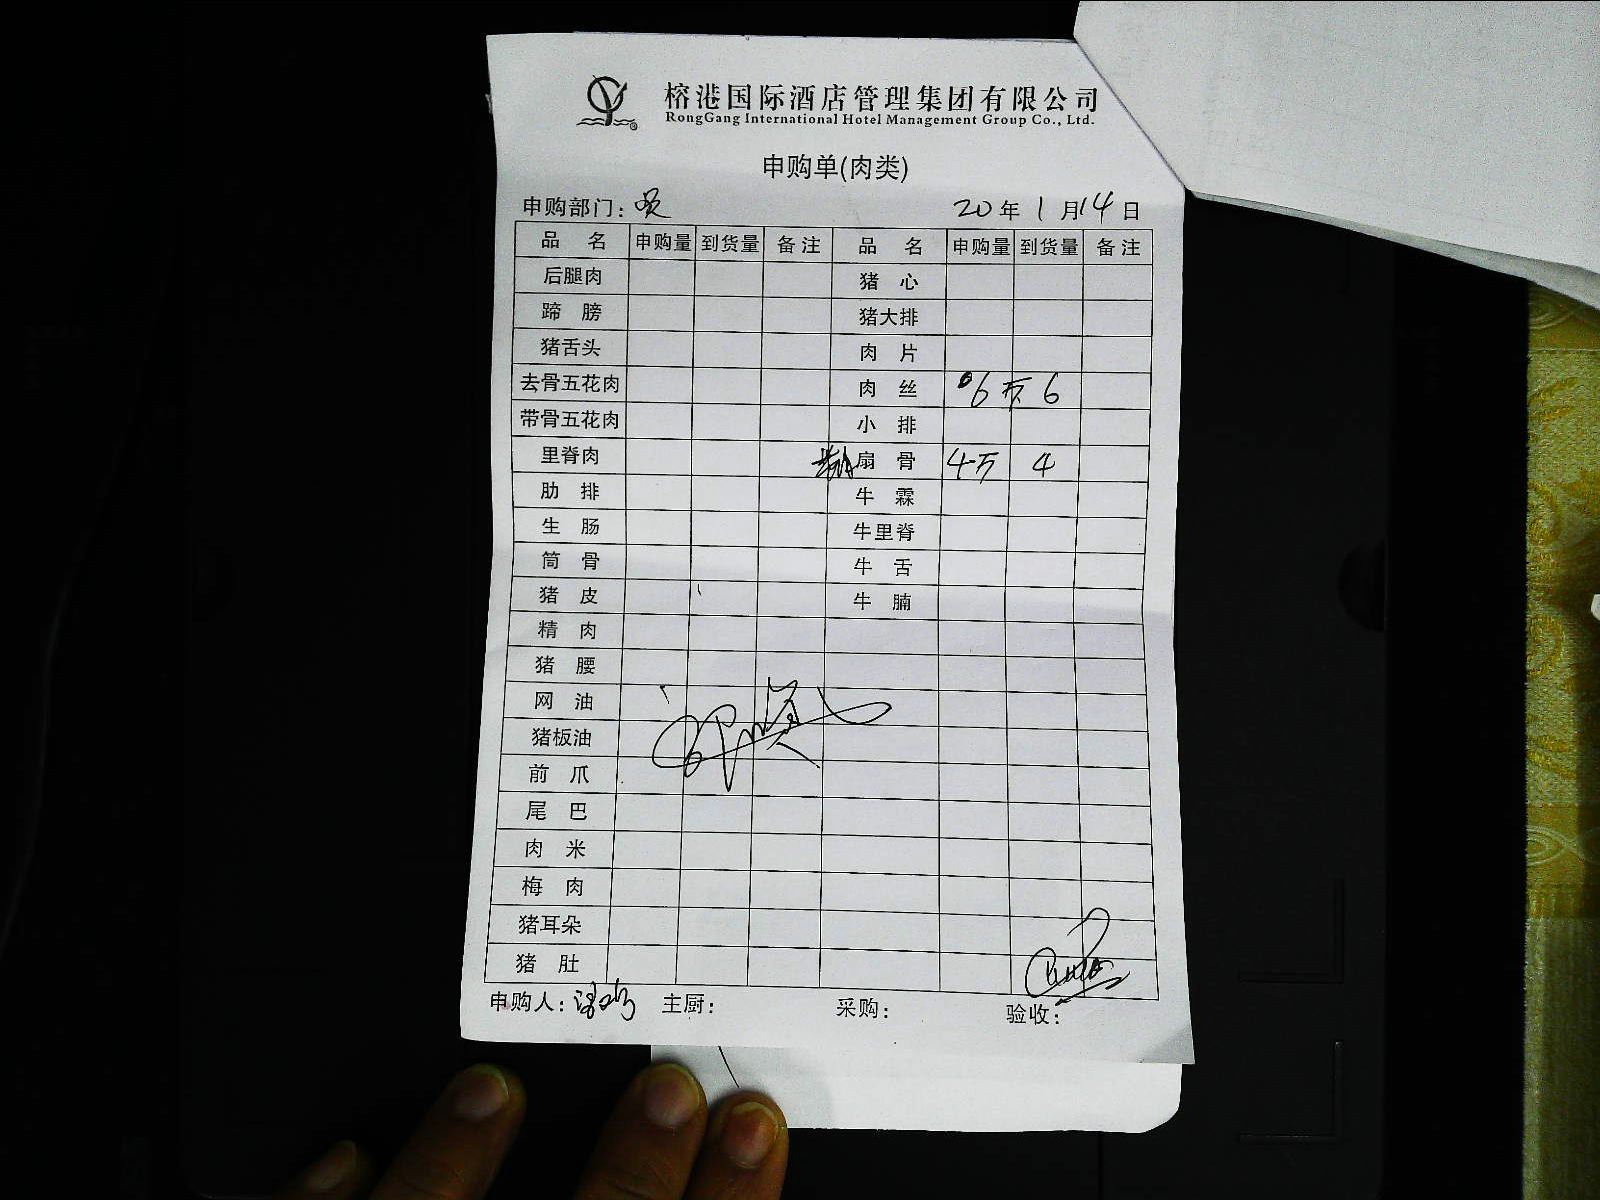 榕港国际酒店管理集团有限公司
RongGang International Hotel Management Group Co., Ltd.
申购单(肉类)
申购部门: 20 年 1 月 14 日
品 名 申购量 到货量 备注 品 名 申购量 到货量 备注
后腿肉 猪 心
蹄 膀 猪大排
猪舌头 肉 片
去骨五花肉 肉 丝 6 6
带骨五花肉 小 排
里脊肉 扇 骨 4 4
肋 排 牛 霖
生 肠 牛里脊
筒 骨 牛 舌
猪 皮 牛 腩
精 肉
猪 腰
网 油
猪板油
前 爪
尾 巴
肉 米
梅 肉
猪耳朵
猪 肚
申购人: 主厨: 采购: 验收: